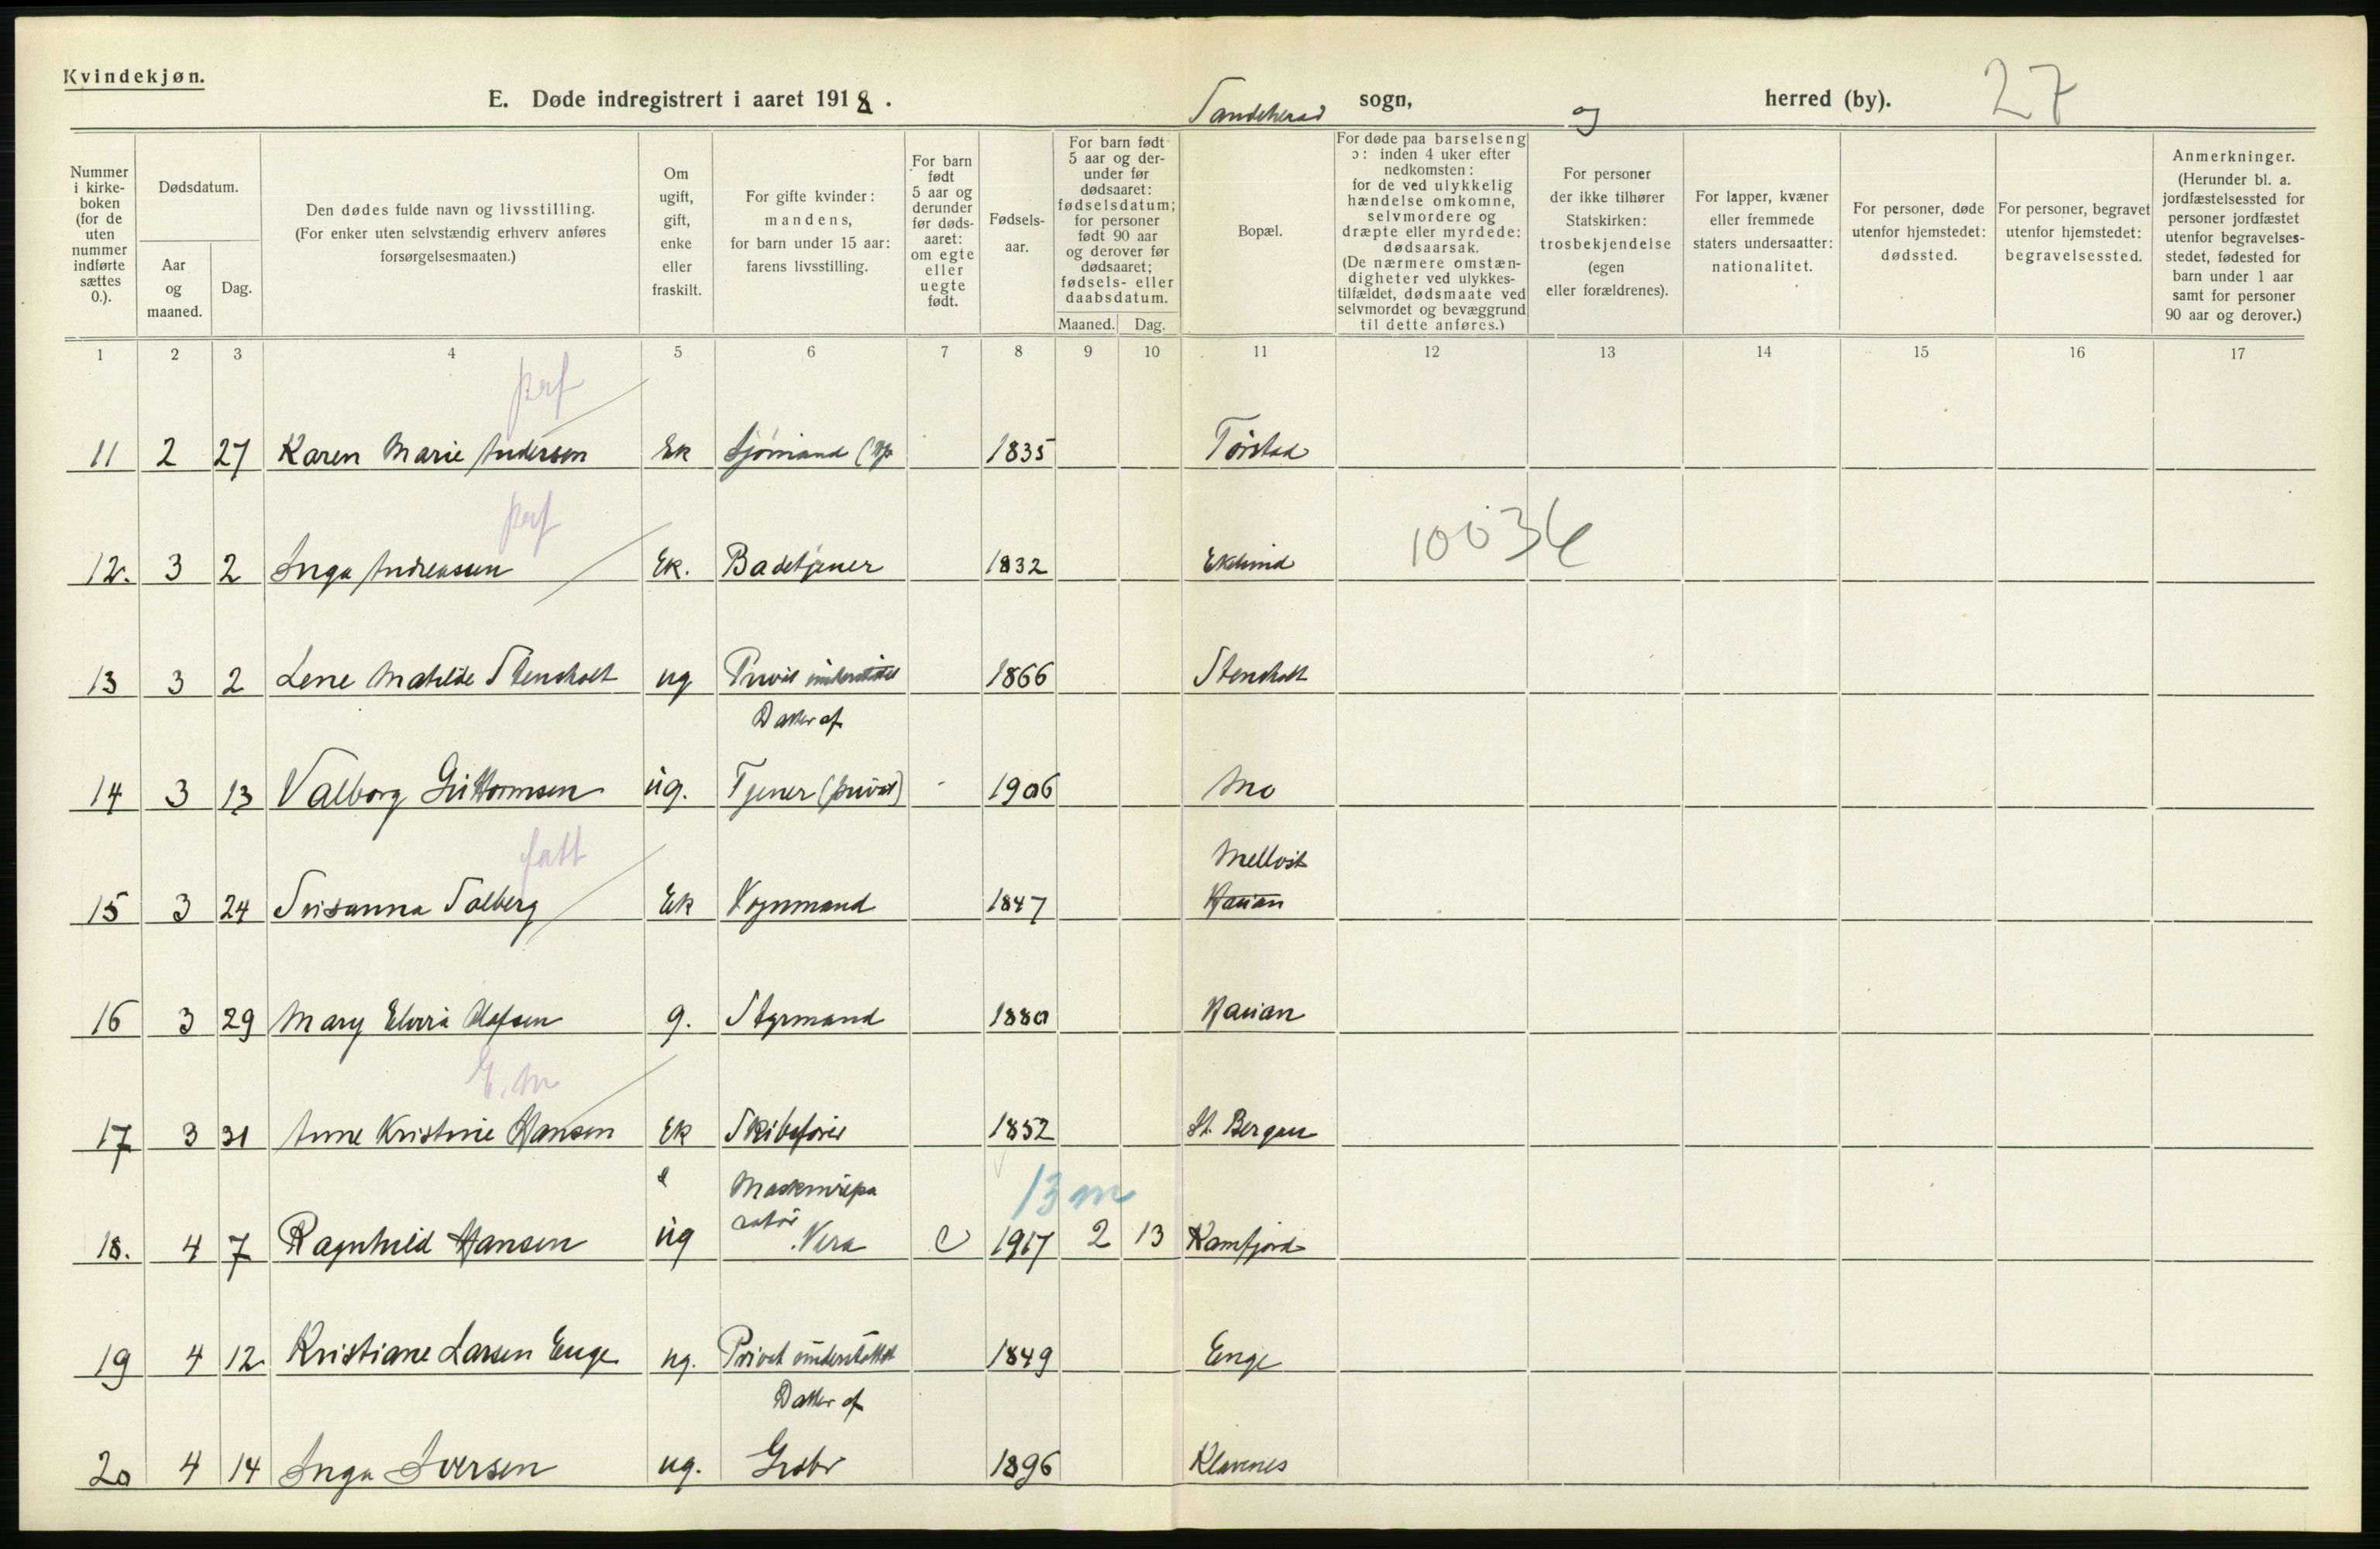 Kvindekjøn.
E. Døde indregistrert i aaret 1918. Sandeherad sogn, og herred (by). 27
Nummer i kirkeboken (for de uten nummer indførte sættes 0.).
Dødsdatum.
Aar og maaned.
Dag.
Den dødes fulde navn og livsstilling. (For enker uten selvstændig erhverv anføres forsørgelsesmaaten.)
Om ugift, gift, enke eller fraskilt.
For gifte kvinder: mandens, for barn under 15 aar: farens livsstilling.
For barn født 5 aar og derunder før dødsaaret: om egte eller uegte født.
Fødselsaar.
For barn født 5 aar og derunder før dødsaaret: fødselsdatum; for personer født 90 aar og derover før dødsaaret; fødsels- eller daabsdatum.
Maaned. Dag.
Bopæl.
For døde paa barselseng ɔ: inden 4 uker efter nedkomsten: for de ved ulykkelig hændelse omkomne, selvmordere og dræpte eller myrdede: dødsaarsak. (De nærmere omstændigheter ved ulykkestilfældet, dødsmaate ved selvmordet og bevæggrund til dette anføres.)
For personer der ikke tilhører Statskirken: trosbekjendelse (egen eller forældrenes).
For lapper, kvæner eller fremmede staters undersaatter: nationalitet.
For personer, døde utenfor hjemstedet: dødssted.
For personer, begravet utenfor hjemstedet: begravelsessted.
Anmerkninger. (Herunder bl. a. jordfæstelsessted for personer jordfæstet utenfor begravelsesstedet, fødested for barn under 1 aar samt for personer 90 aar og derover.)
1 2 3 4 5 6 7 8 9 10 11 12 13 14 15 16 17
11 2 27 Karen Marie Andersen Ek Sjømand 1835 Torstad
10036
12. 3 2 Inga Andreassen Ek. Badetjener 1832 Eklund
13 3 2 Lene Matilde Stensholt ug Privat understøttet 1866 Stensholt
Datter af
14 3 13 Valborg Guttormsen ug. Tjener (privat) - 1906 Mo
fatt
Mellost
15 3 24 Susanna Solberg Ek Vognmand 1847 Hauan
16 3 29 Mary Elvira Olafsen g. Styrmand 1880 Hauan
E. m
17 3 31 Anne Kristine Hansen Ek Skibsfører 1852 St. Bergan
Maskinrepa
13 m
ratør
18. 4 7 Ragnhild Hansen ug Vera e 1917 2 13 Kamfjord
19 4 12 Kristiane Larsen Enge ug. Privat understøttet 1849 Enge
Datter af
20 4 14 Inga Iversen ug. Grbr 1896 Klavenes